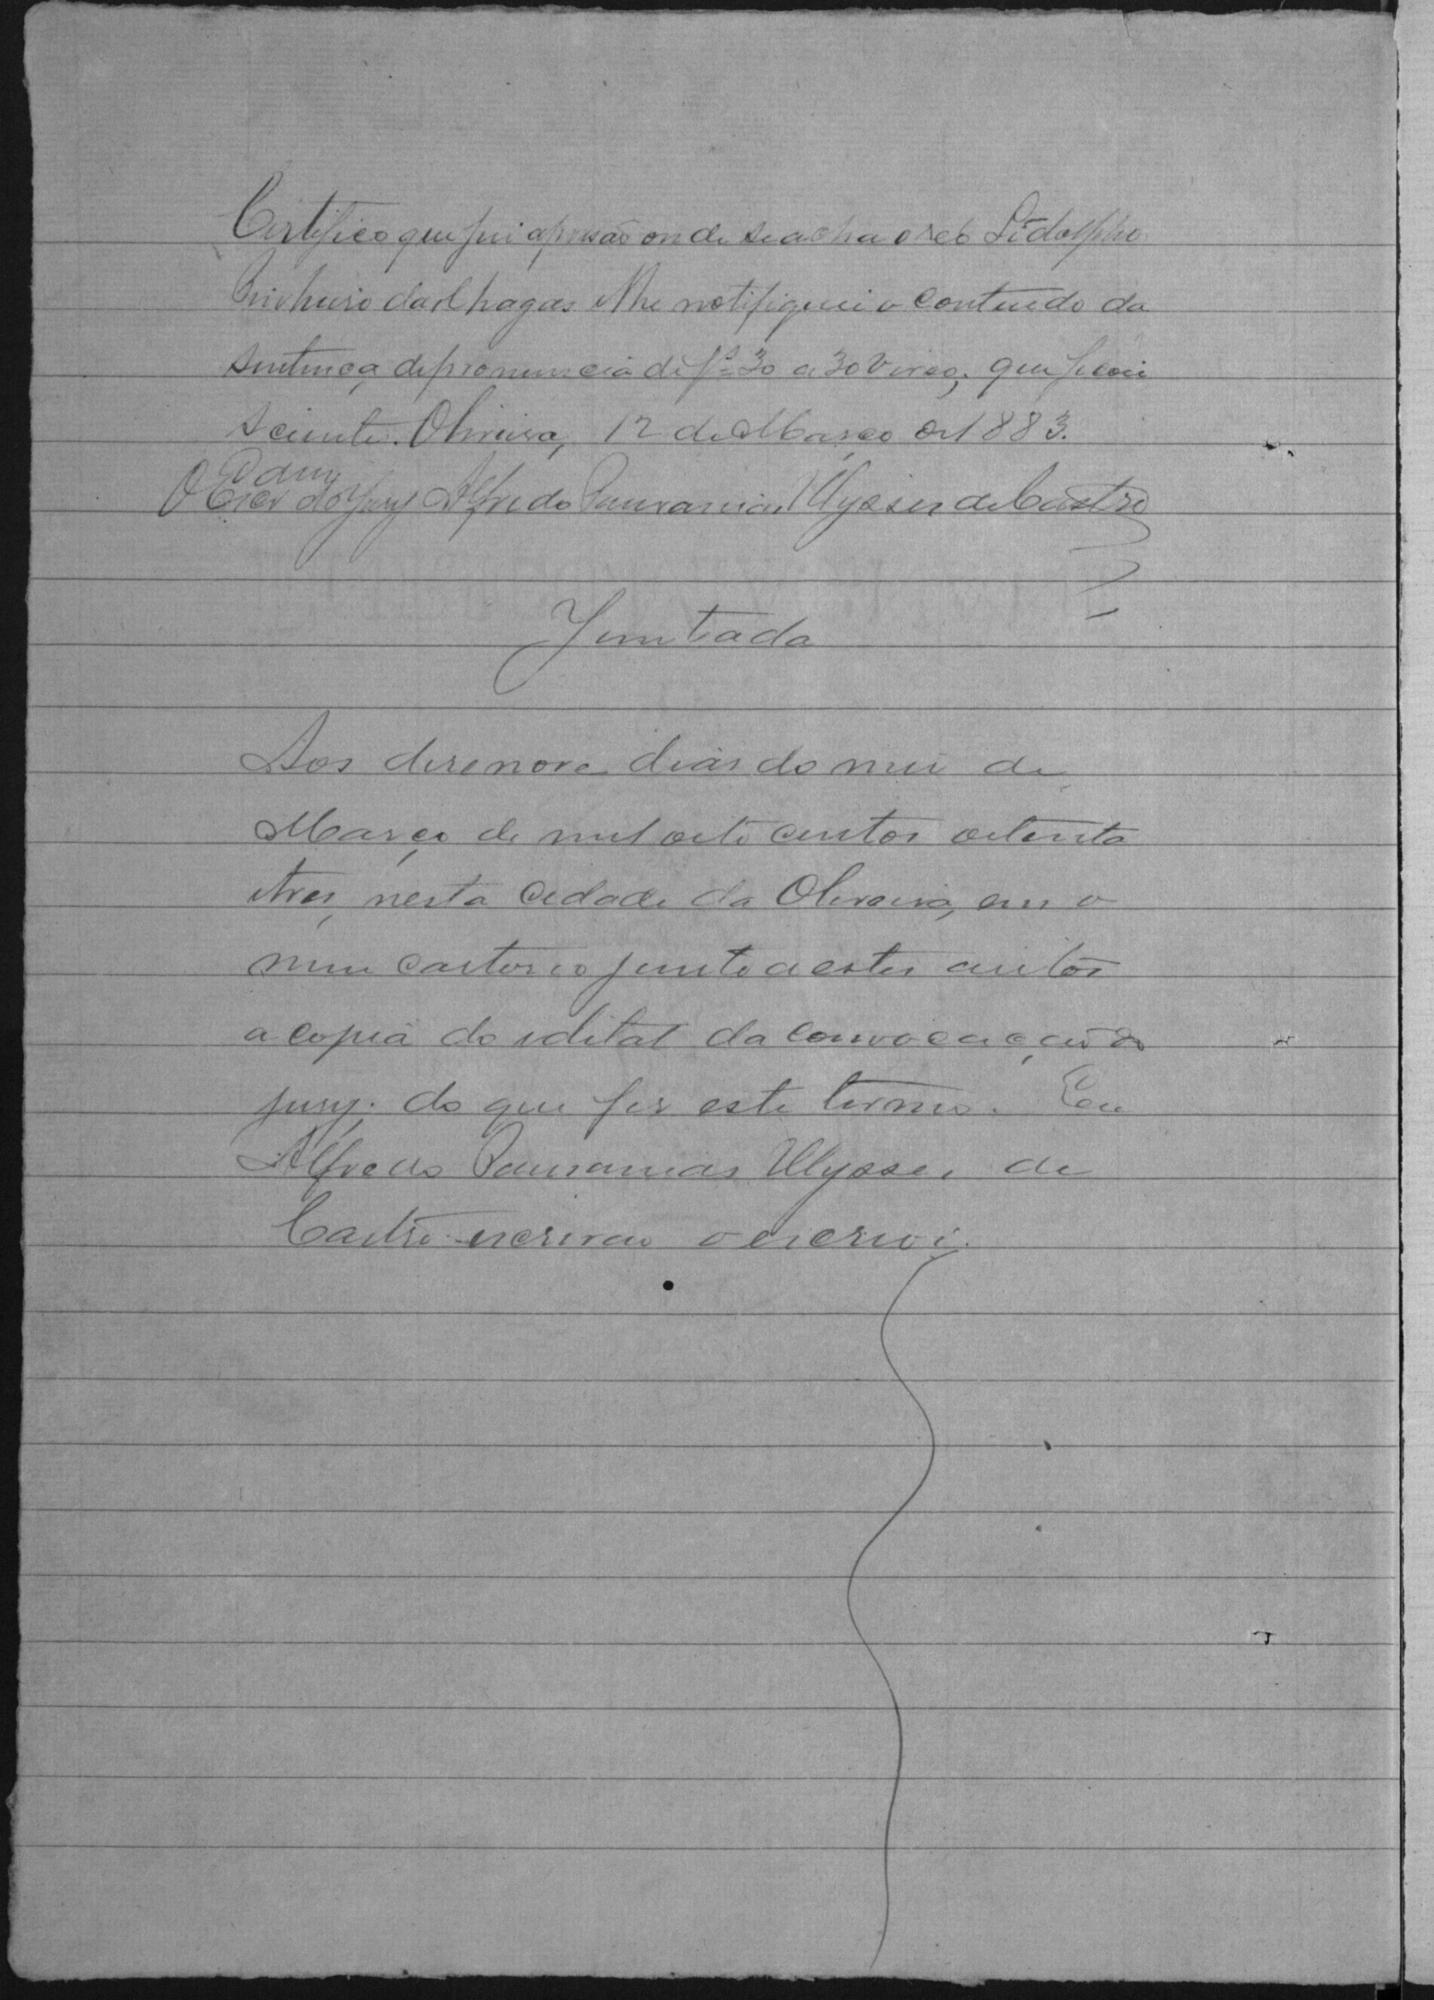 Certifico que fui aprisão onde se acha o reo Lidolpho
Pinheiro das Chagas e lhe notifiquei o contendo da
sentença de pronuncia de fs 30 a 30 verso; que ficou
sciente. Oliveira, 12 de Março de 1883.
O Escr do Jury Alfredo Pauranias Ulysses de Castro
Juntada
Aos desenove dias do mes de
Março de mil oito centos oitenta
etres, nesta cidade da Oliveira, em o
meu cartorio junto a estes autos
a copia do edital da convocação do
jury. do que fis este termo. Eu
Alfredo Pauranias Ulysses de
Castro escrivão o escrevi.